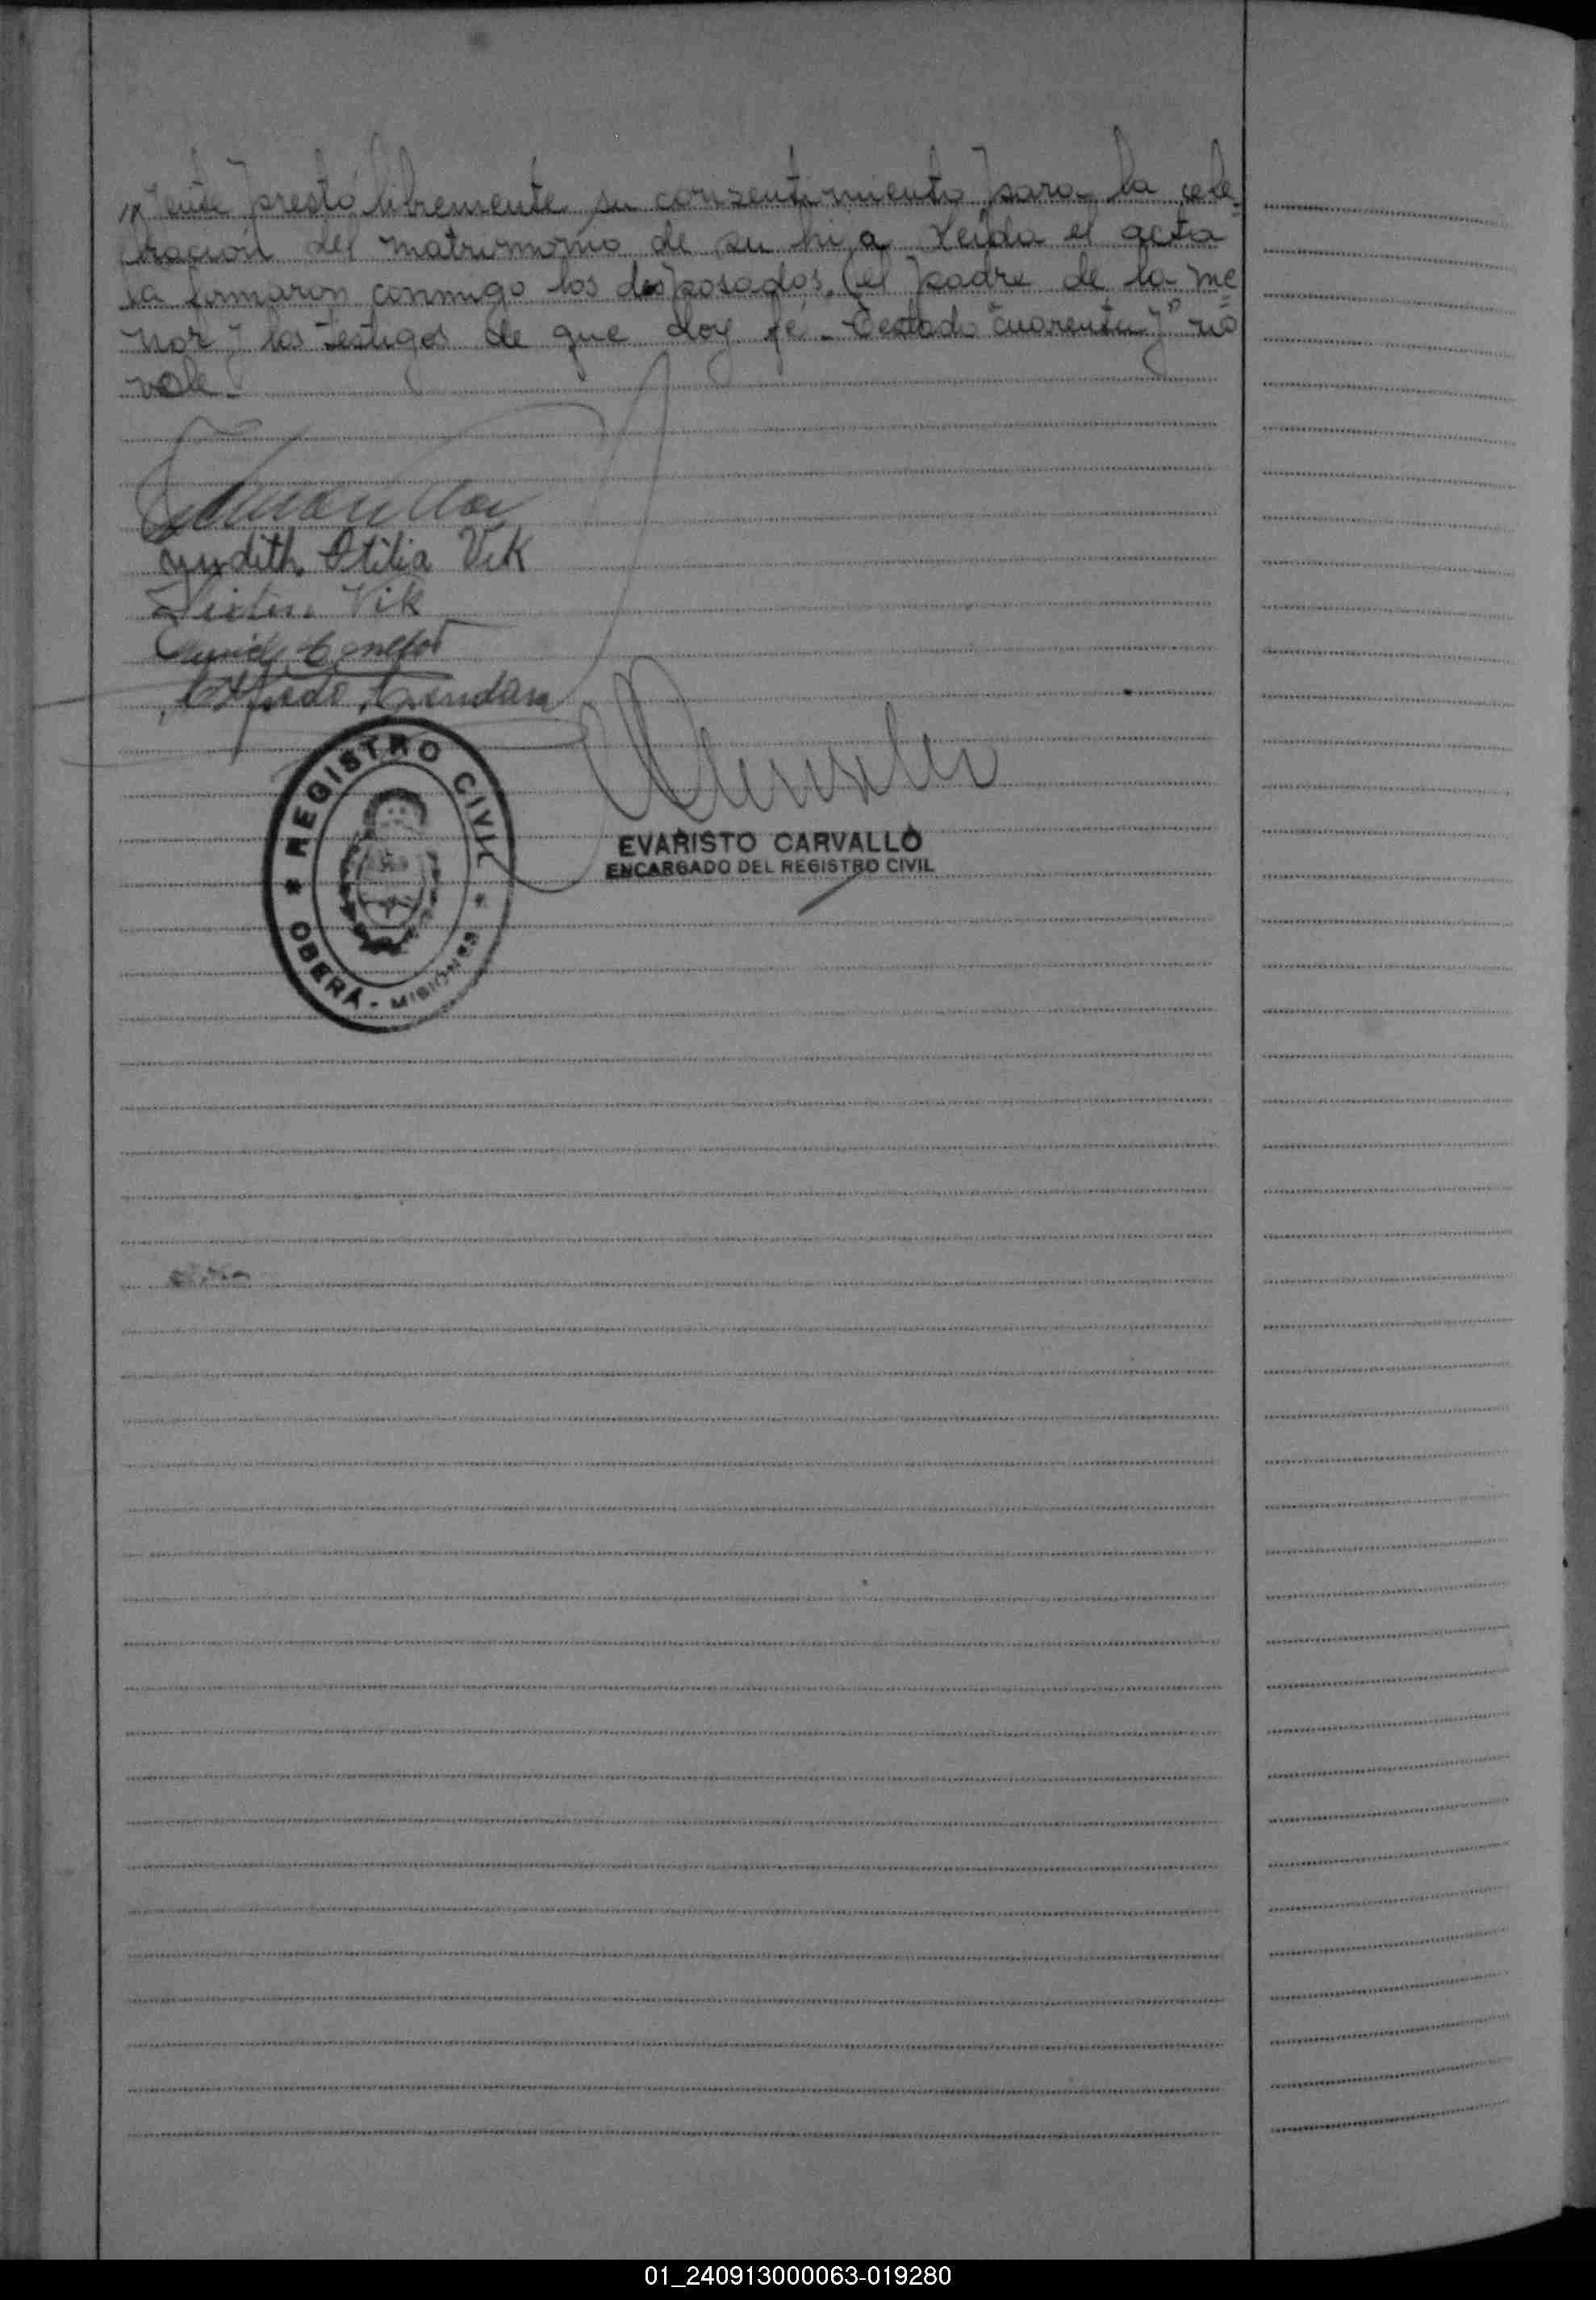 prestó libremente su consentimiento para la cele=
bración del matrimonio de su hija. Leida el acta
la firmaron conmigo los desposados, el padre de la me=
nor y los testigos de que doy fé.- Testado "cuarenta y" no
vale.-
Judith Otilia Vik
Vik
Alfredo
REGISTRO CIVIL
OBERÁ - MISIONES
EVARISTO CARVALLO
ENCARGADO DEL REGISTRO CIVIL
01_240913000063-019280